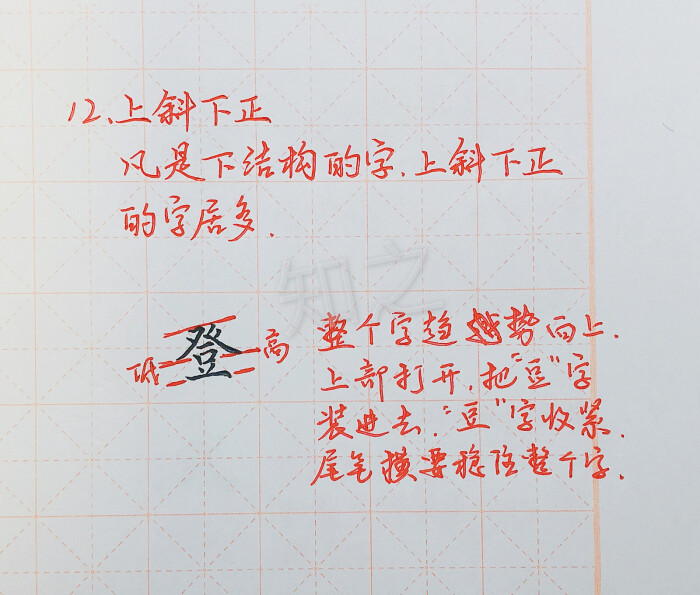 12、上斜下正
凡是下结构的字，上斜下正
的字居多．
知之
登
低
高
整个字趋势向上．
上部打开，把“豆”字
装进去．“豆”字收紧．
尾笔横要稳住整个字．